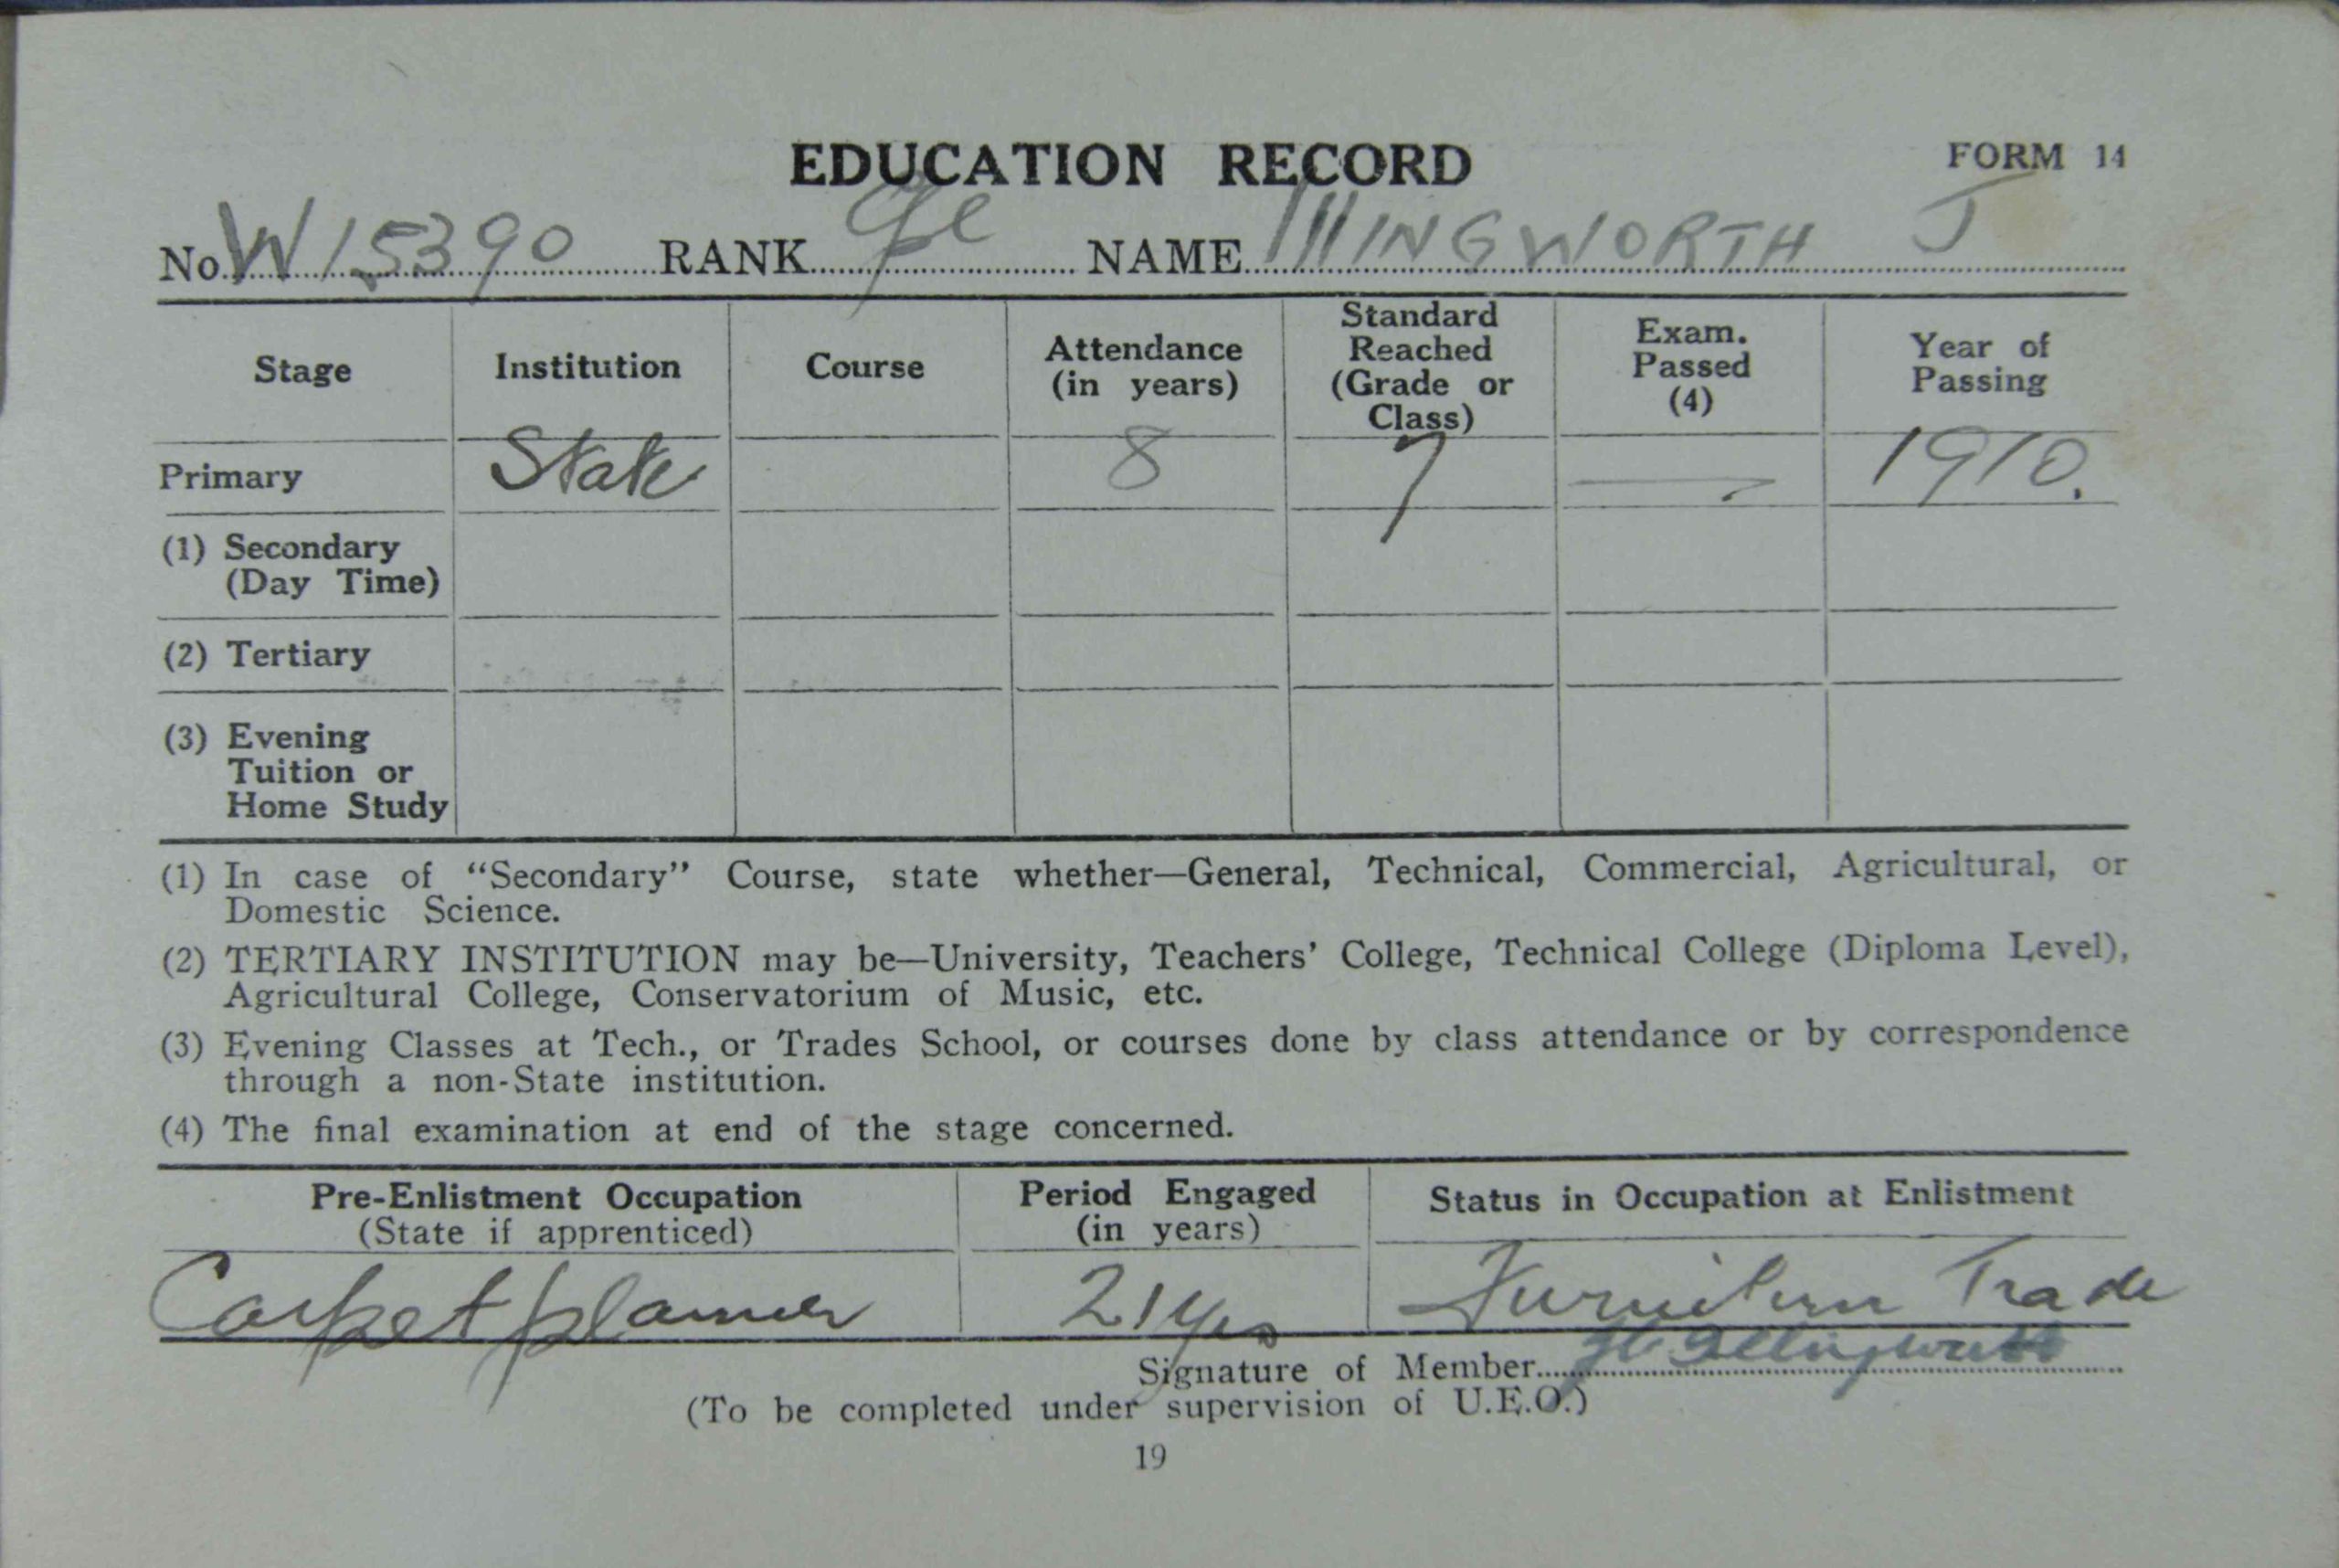 EDUCATION RECORD
FORM 14
No. W15390 RANK Cpl NAME IllINGWORTH J
Stage Institution Course Attendance (in years) Standard Reached (Grade or Class) Exam. Passed (4) Year of Passing
Primary State 8 7 — 1910.
(1) Secondary
(Day Time)
(2) Tertiary
(3) Evening
Tuition or
Home Study
(1) In case of “Secondary” Course, state whether—General, Technical, Commercial, Agricultural, or
Domestic Science.
(2) TERTIARY INSTITUTION may be—University, Teachers’ College, Technical College (Diploma Level),
Agricultural College, Conservatorium of Music, etc.
(3) Evening Classes at Tech., or Trades School, or courses done by class attendance or by correspondence
through a non-State institution.
(4) The final examination at end of the stage concerned.
Pre-Enlistment Occupation (State if apprenticed) Period Engaged (in years) Status in Occupation at Enlistment
Carpet planner 21 yrs Furniture Trade
Signature of Member Illingworth
(To be completed under supervision of U.E.O.)
19